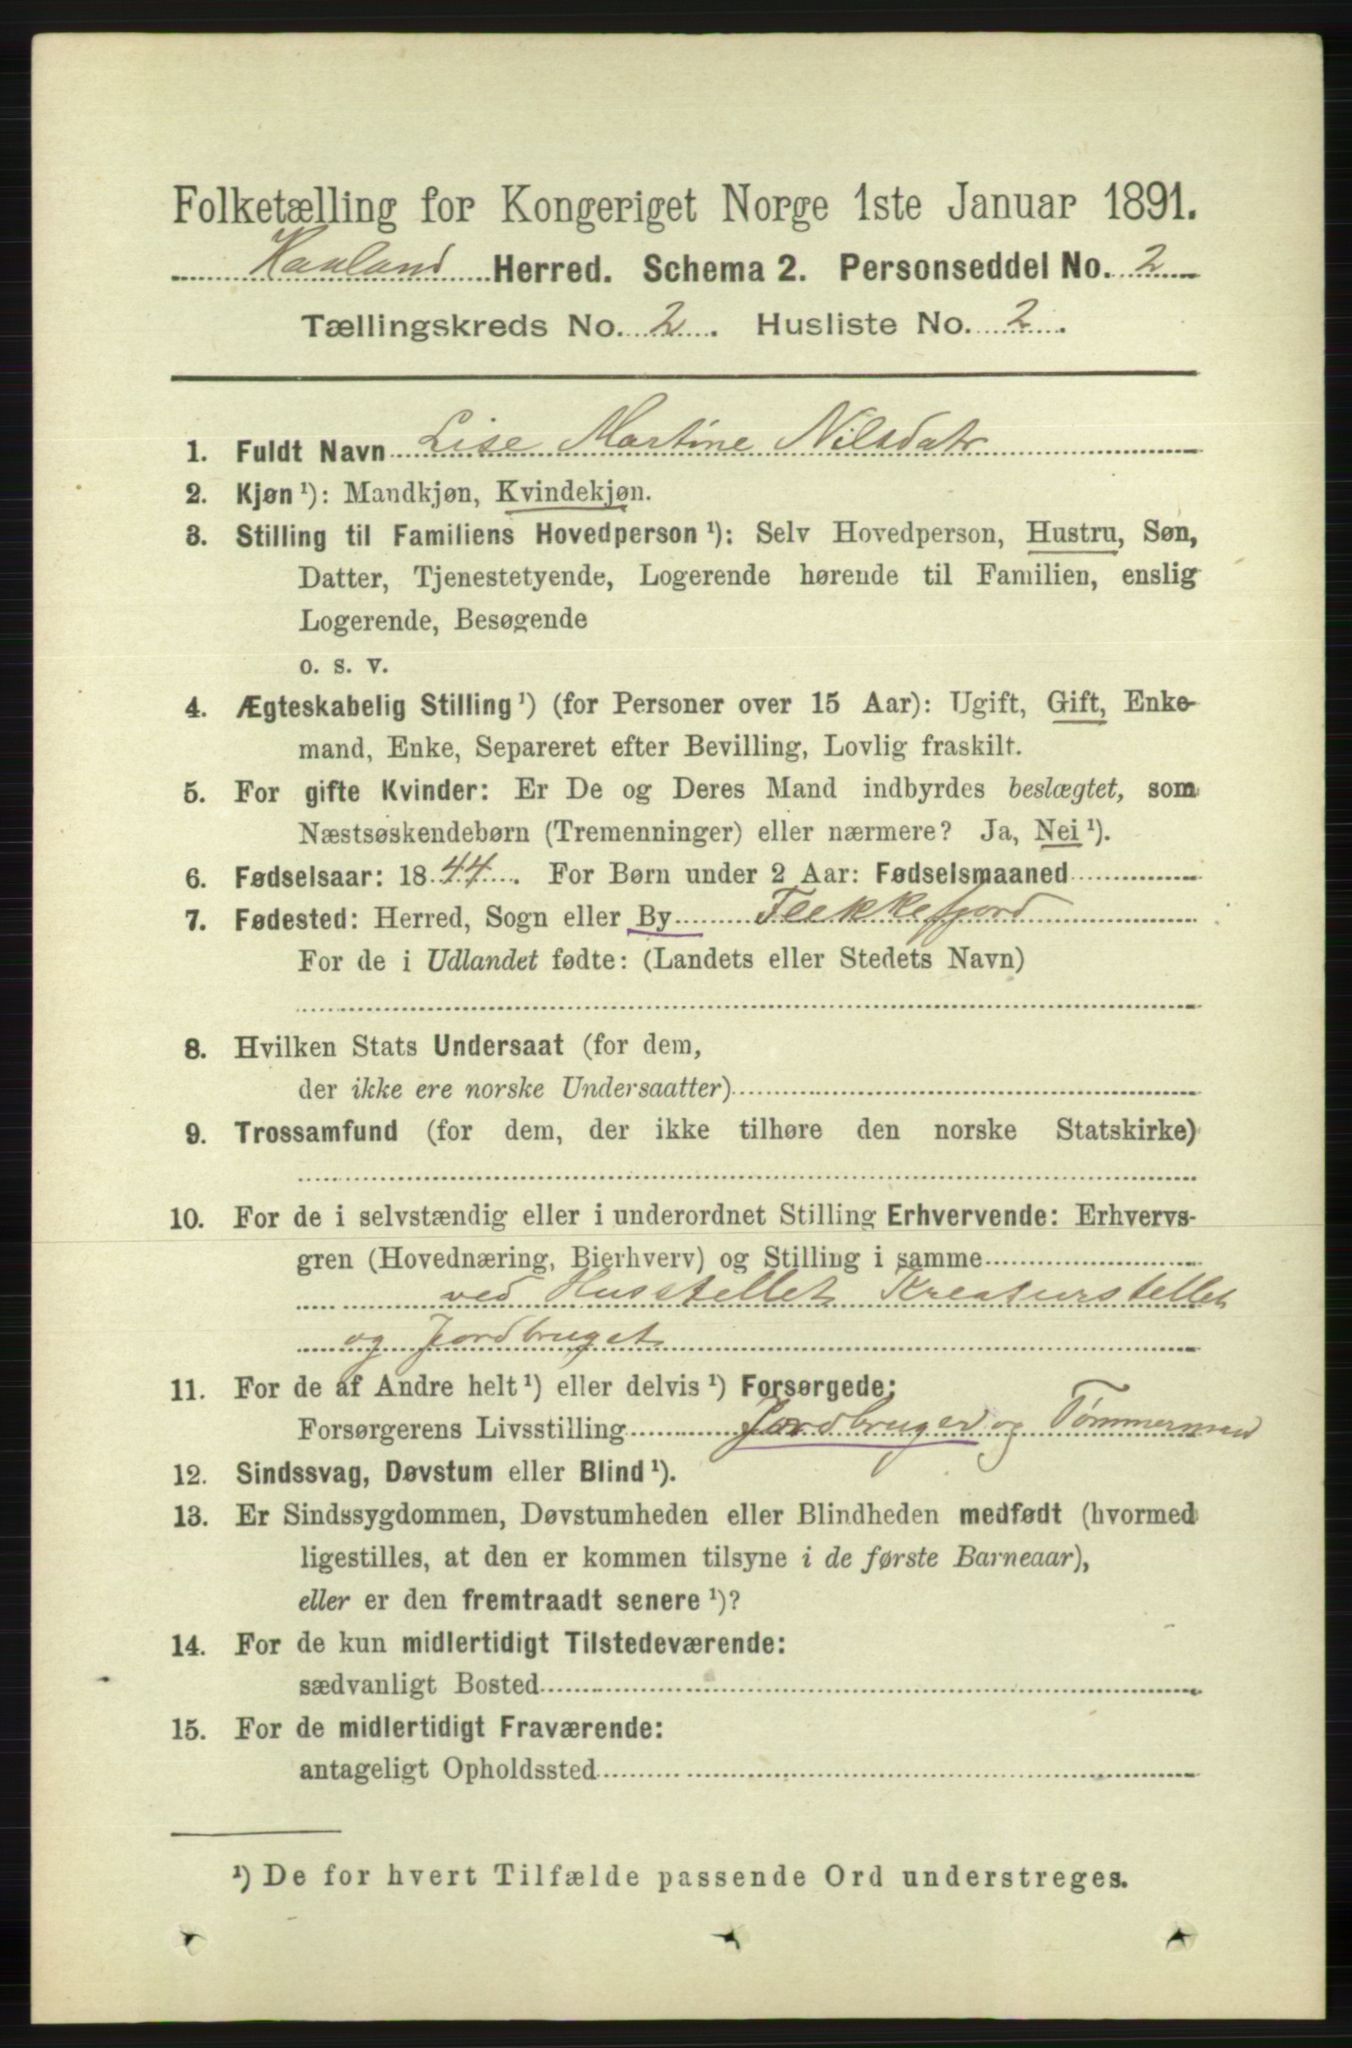 Folketælling for Kongeriget Norge 1ste Januar 1891.
Haaland Herred. Schema 2. Personseddel No. 2
Tællingskreds No. 2. Husliste No. 2.
1. Fuldt Navn Lise Martine Nilsdatr
2. Kjøn ¹): Mandkjøn, Kvindekjøn.
3. Stilling til Familiens Hovedperson ¹): Selv Hovedperson, Hustru, Søn,
Datter, Tjenestetyende, Logerende hørende til Familien, enslig
Logerende, Besøgende
o. s. v.
4. Ægteskabelig Stilling ¹) (for Personer over 15 Aar): Ugift, Gift, Enke-
mand, Enke, Separeret efter Bevilling, Lovlig fraskilt.
5. For gifte Kvinder: Er De og Deres Mand indbyrdes beslægtet, som
Næstsøskendebørn (Tremenninger) eller nærmere? Ja, Nei ¹).
6. Fødselsaar: 1844. For Børn under 2 Aar: Fødselsmaaned
7. Fødested: Herred, Sogn eller By Flekkefjord
For de i Udlandet fødte: (Landets eller Stedets Navn)
8. Hvilken Stats Undersaat (for dem,
der ikke ere norske Undersaatter)
9. Trossamfund (for dem, der ikke tilhøre den norske Statskirke)
10. For de i selvstændig eller i underordnet Stilling Erhvervende: Erhvervs-
gren (Hovednæring, Bierhverv) og Stilling i samme
ved Husstellet Kreaturstellet
og Jordbruget
11. For de af Andre helt ¹) eller delvis ¹) Forsørgede:
Forsørgerens Livsstilling Jordbruger og Tømmermand
12. Sindssvag, Døvstum eller Blind ¹).
13. Er Sindssygdommen, Døvstumheden eller Blindheden medfødt (hvormed
ligestilles, at den er kommen tilsyne i de første Barneaar),
eller er den fremtraadt senere ¹)?
14. For de kun midlertidigt Tilstedeværende:
sædvanligt Bosted
15. For de midlertidigt Fraværende:
antageligt Opholdssted
¹) De for hvert Tilfælde passende Ord understreges.